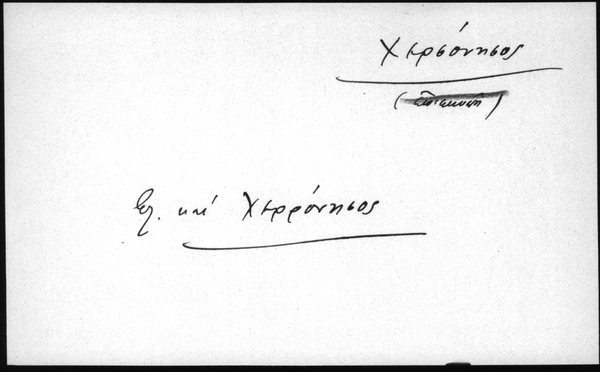 Χερσόνησος
Βλ. καί Χερρόνησος